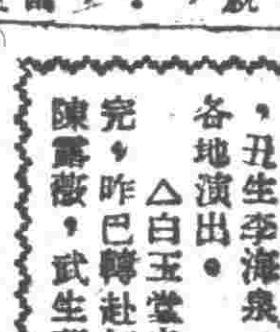 ，丑生李海泉
各地演出。
△白玉堂
完，昨巳轉赴
陳露薇，武生